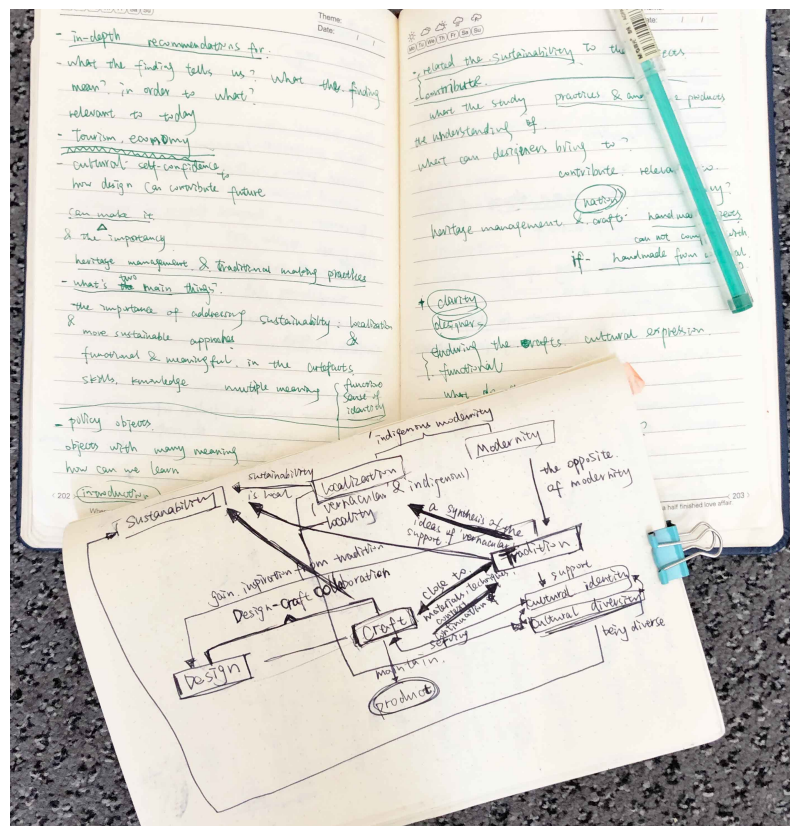 Theme:
Date: / /
- in-depth recommendations for.
- what the finding tells us? What the finding
mean? in order to what?
relevant to today
- Tourism, economy
- cultural self-confidence
to
how design can contribute future
can make it.
& the importancy
heritage management & traditional making practices
- what's the two main things?
the importance of addressing sustainability: localization
& more sustainable approaches &
functional & meaningful. in the artefacts
skills, knowledge multiple meaning { function
sense of
identity
- policy objects.
objects with many meaning
how can we learn
introduction
202
Mo Tu We Th Fr Sa Su
ate: / /
- related the sustainability to the
- contribute.
what the study practices & products
the understanding of.
what can designers bring to?
contribute. releva
nation
heritage management & crafts. handma
can not with
if handmade from
+ clarity
designers
enduring the crafts. cultural expression
functional
a half finished love affair.
203
M&G
indigenous modernity
Modernity
localization
(vernacular & indigenous)
locality
sustainability
is local
Sustanability
the opposite
of modernity
a synthesis of the
ideas of vernacular
support.
Tradition
gain inspiration from tradition
Design-craft collaboration
close to
materials, techniques,
context
continuation
serving
support
cultural identity
cultural diversity
being diverse
Craft
Design
maintain.
product